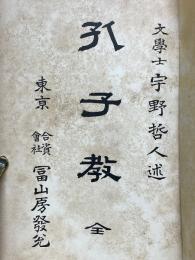 文學士 宇野哲人述
孔子敎 全
東京 合資會社 冨山房發兌